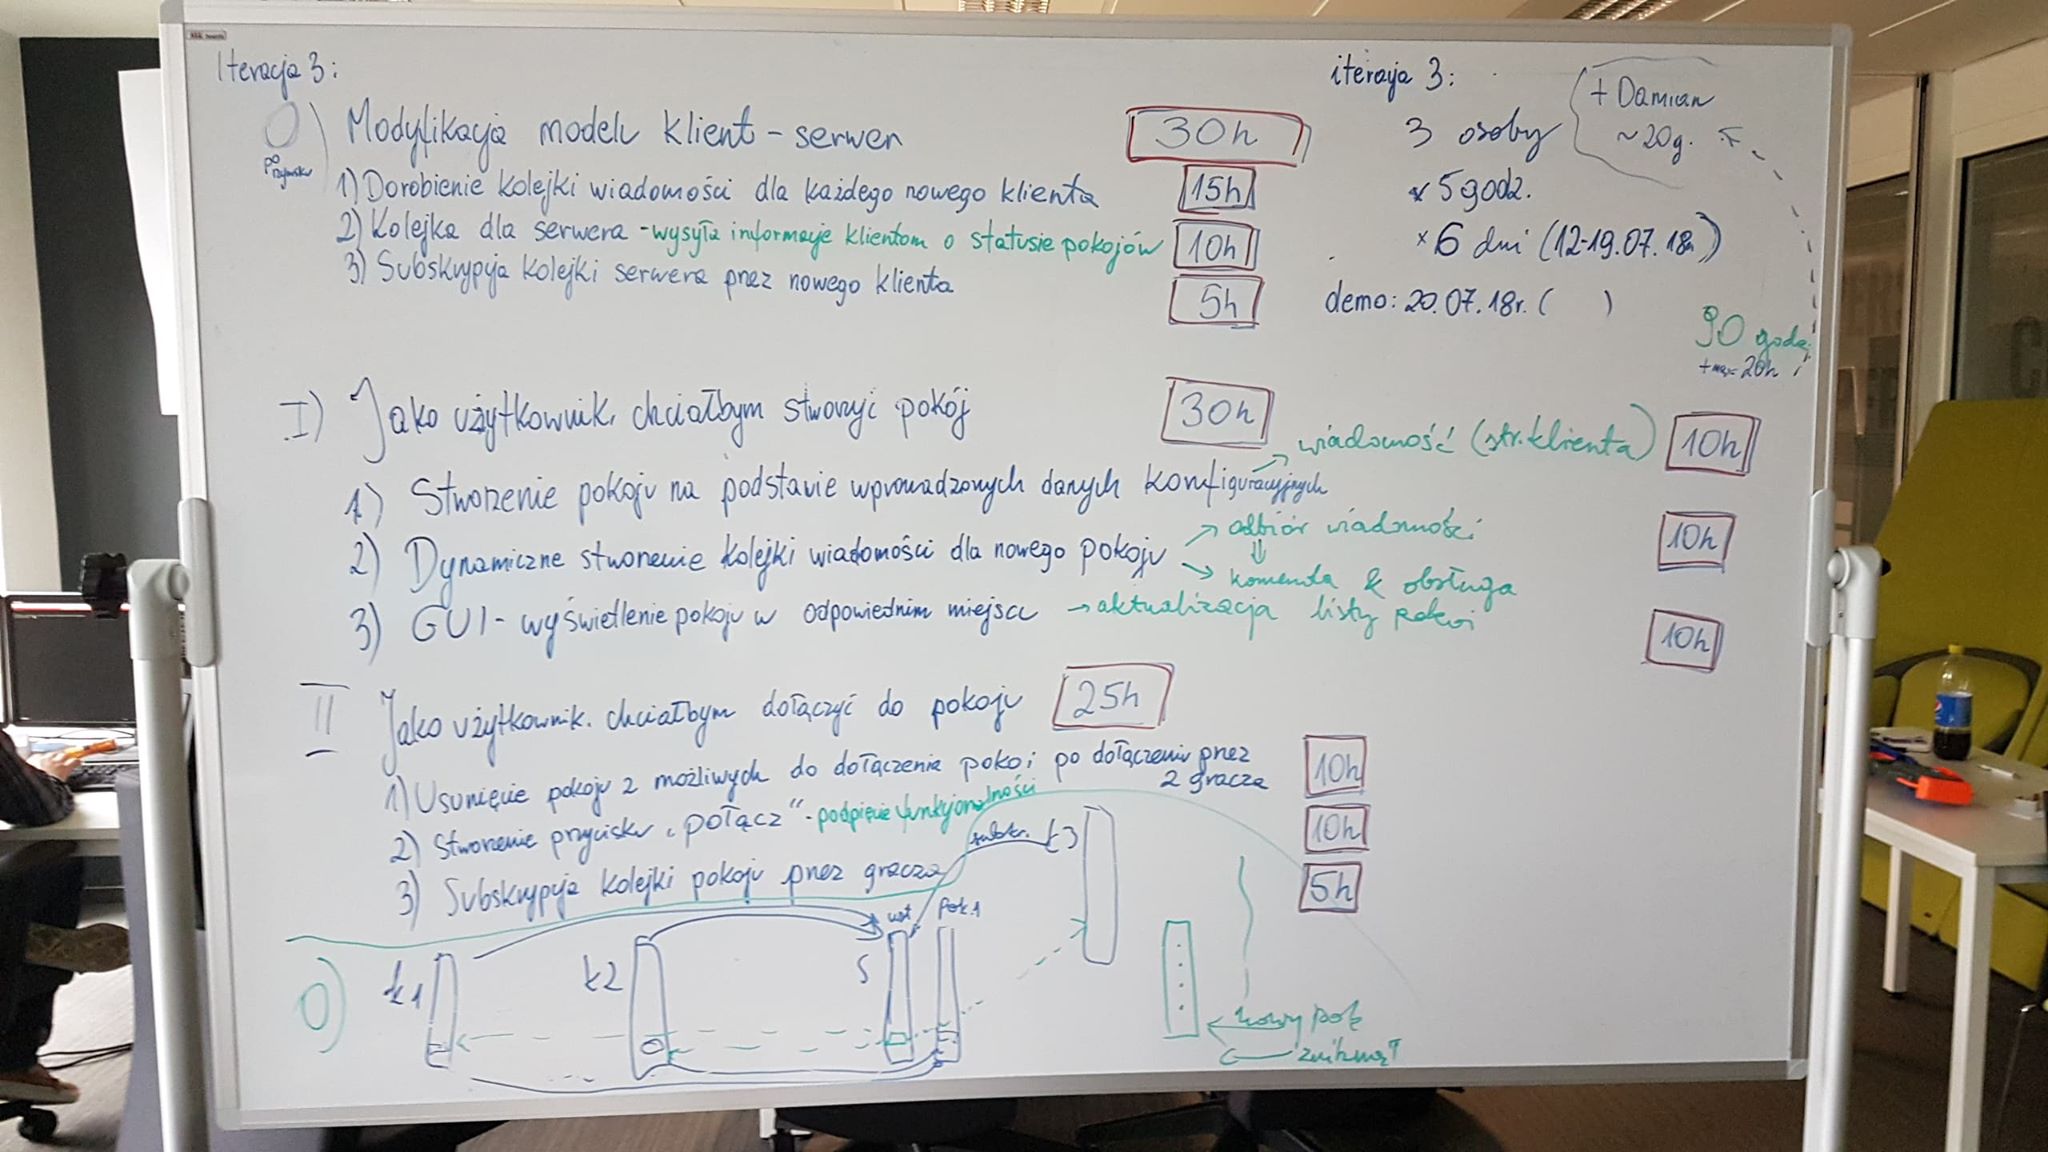 Iteracja 3:
0) Modyfikacja modelu klient - serwer 30h
1) Dorobienie kolejki wiadomości dla każdego nowego klienta 15h
2) Kolejka dla serwera - wysyła informacje klientom o statusie pokojów 10h
3) Subskrypcja kolejki serwera przez nowego klienta 5h
iteracja 3:
3 osoby
x 5 godz.
x 6 dni (12-19.07.18r)
demo: 20.07.18r. ( )
+ Damian
~20g.
90 godz.
+ max 20h
I) Jako użytkownik, chciałbym stworzyć pokój 30h
1) Stworzenie pokoju na podstawie wprowadzonych danych konfiguracyjnych
wiadomość (str. klienta) 10h
2) Dynamiczne stworzenie kolejki wiadomości dla nowego pokoju
→ odbiór wiadomości 10h
⇓
→ komenda & obsługa
3) GUI - wyświetlenie pokoju w odpowiednim miejscu → aktualizacja listy pokoi 10h
II Jako użytkownik, chciałbym dołączyć do pokoju 25h
1) Usunięcie pokoju z możliwych do dołączenia pokoi po dołączeniu przez
2 gracza 10h
2) Stworzenie przycisku „połącz” - podpięcie funkcjonalności 10h
3) Subskrypcja kolejki pokoju przez gracza 5h
0)
k1
k2
S
pok.1
subskr.
k3
nowy pok
zniknął